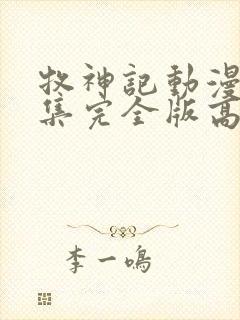 牧神記動漫
集完全版高
李一鳴